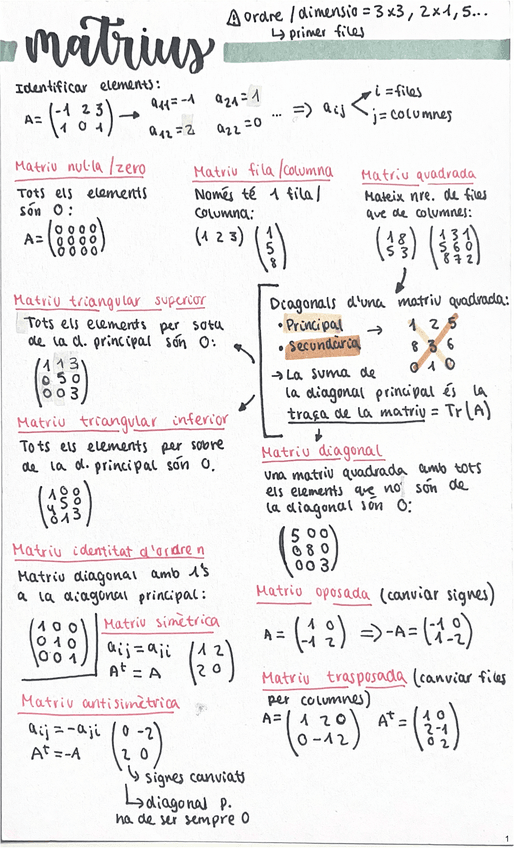 matrius
⚠ ordre / dimensió = 3x3, 2x1, 5...
↳ primer files
Identificar elements:
A = (-1 2 3
1 0 1) → a11=-1 a21=1
a12=2 a22=0 ... => aij
i = files
j = columnes
Matriu nul·la / zero
Tots els elements
són 0:
A = (0 0 0 0
0 0 0 0
0 0 0 0)
Matriu fila / columna
Només té 1 fila /
columna:
(1 2 3) (1
5
8)
Matriu quadrada
Mateix nre. de files
que de columnes:
(1 8
5 3)
(1 3 1
5 6 0
8 7 2)
Matriu triangular superior
Tots els elements per sota
de la d. principal són 0:
(1 1 3
0 5 0
0 0 3)
Diagonals d'una matriu quadrada:
• Principal →
• Secundària
1 2 5
8 3 6
0 1 0
→ La suma de
la diagonal principal és la
traça de la matriu = Tr(A)
Matriu triangular inferior
Tots els elements per sobre
de la d. principal són 0.
(1 0 0
4 5 0
0 1 3)
Matriu diagonal
una matriu quadrada amb tots
els elements que no són de
la diagonal són 0:
(5 0 0
0 8 0
0 0 3)
Matriu identitat d'ordre n
Matriu diagonal amb 1's
a la diagonal principal:
(1 0 0
0 1 0
0 0 1)
Matriu simètrica
aij = aji
At = A
(1 2
2 0)
Matriu antisimètrica
aij = -aji
At = -A
(0 -2
2 0)
↳ signes canviats
↳ diagonal p.
ha de ser sempre 0
Matriu oposada (canviar signes)
A = (1 0
-1 2) => -A = (-1 0
1 -2)
Matriu trasposada (canviar files
per columnes)
A = (1 2 0
0 -1 2)
At = (1 0
2 -1
0 2)
1